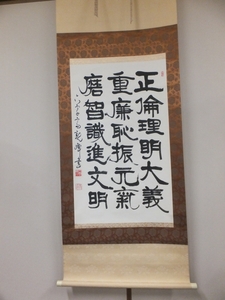 正倫理明大義
重廉恥振元氣
磨智識進文明